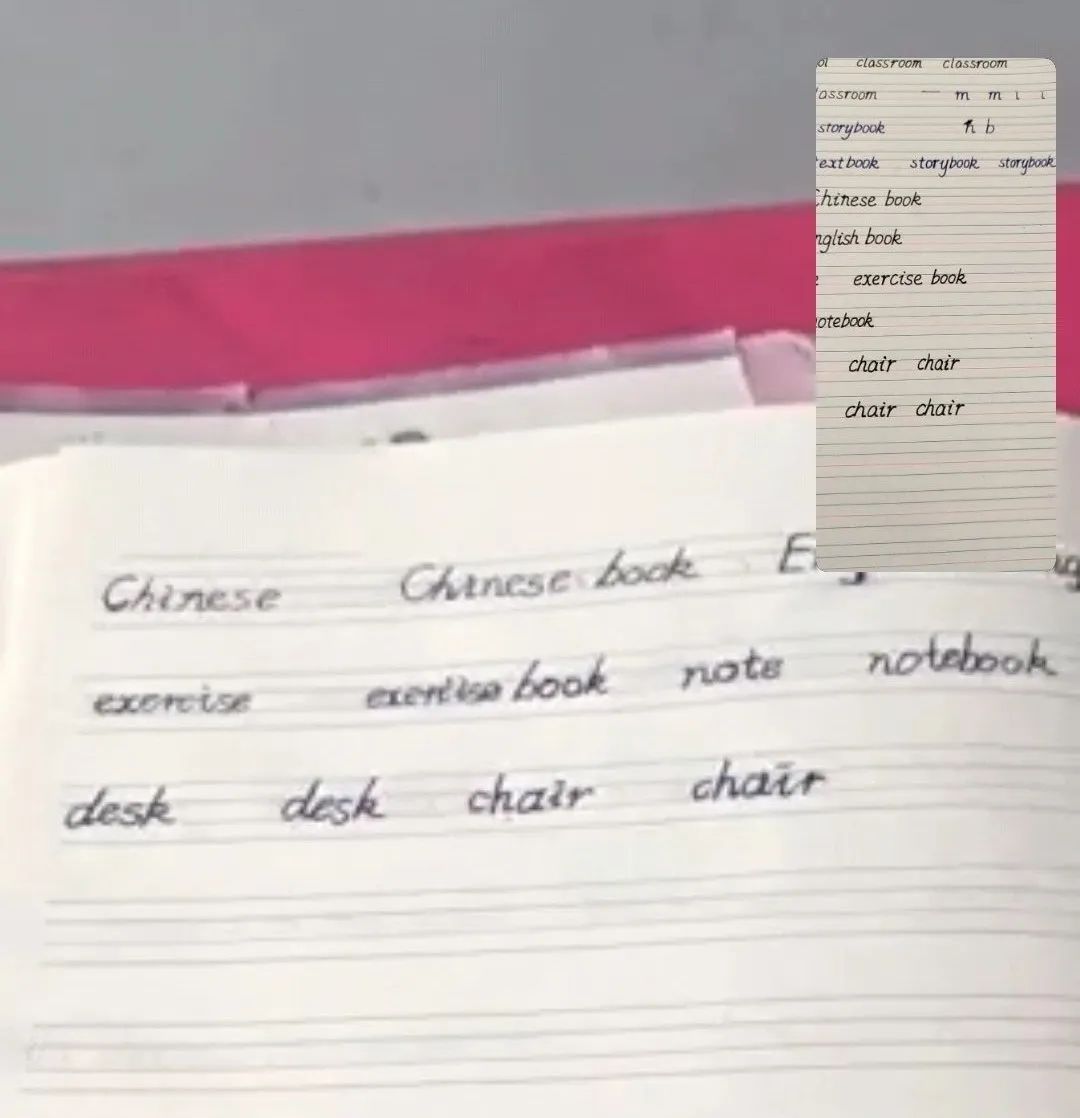 classroom classroom
m m
storybook h b
storybook storybook
book
book
exercise book
chair chair
chair chair
Chinese Chinese book
exercise exercise book note notebook
desk desk chair chair